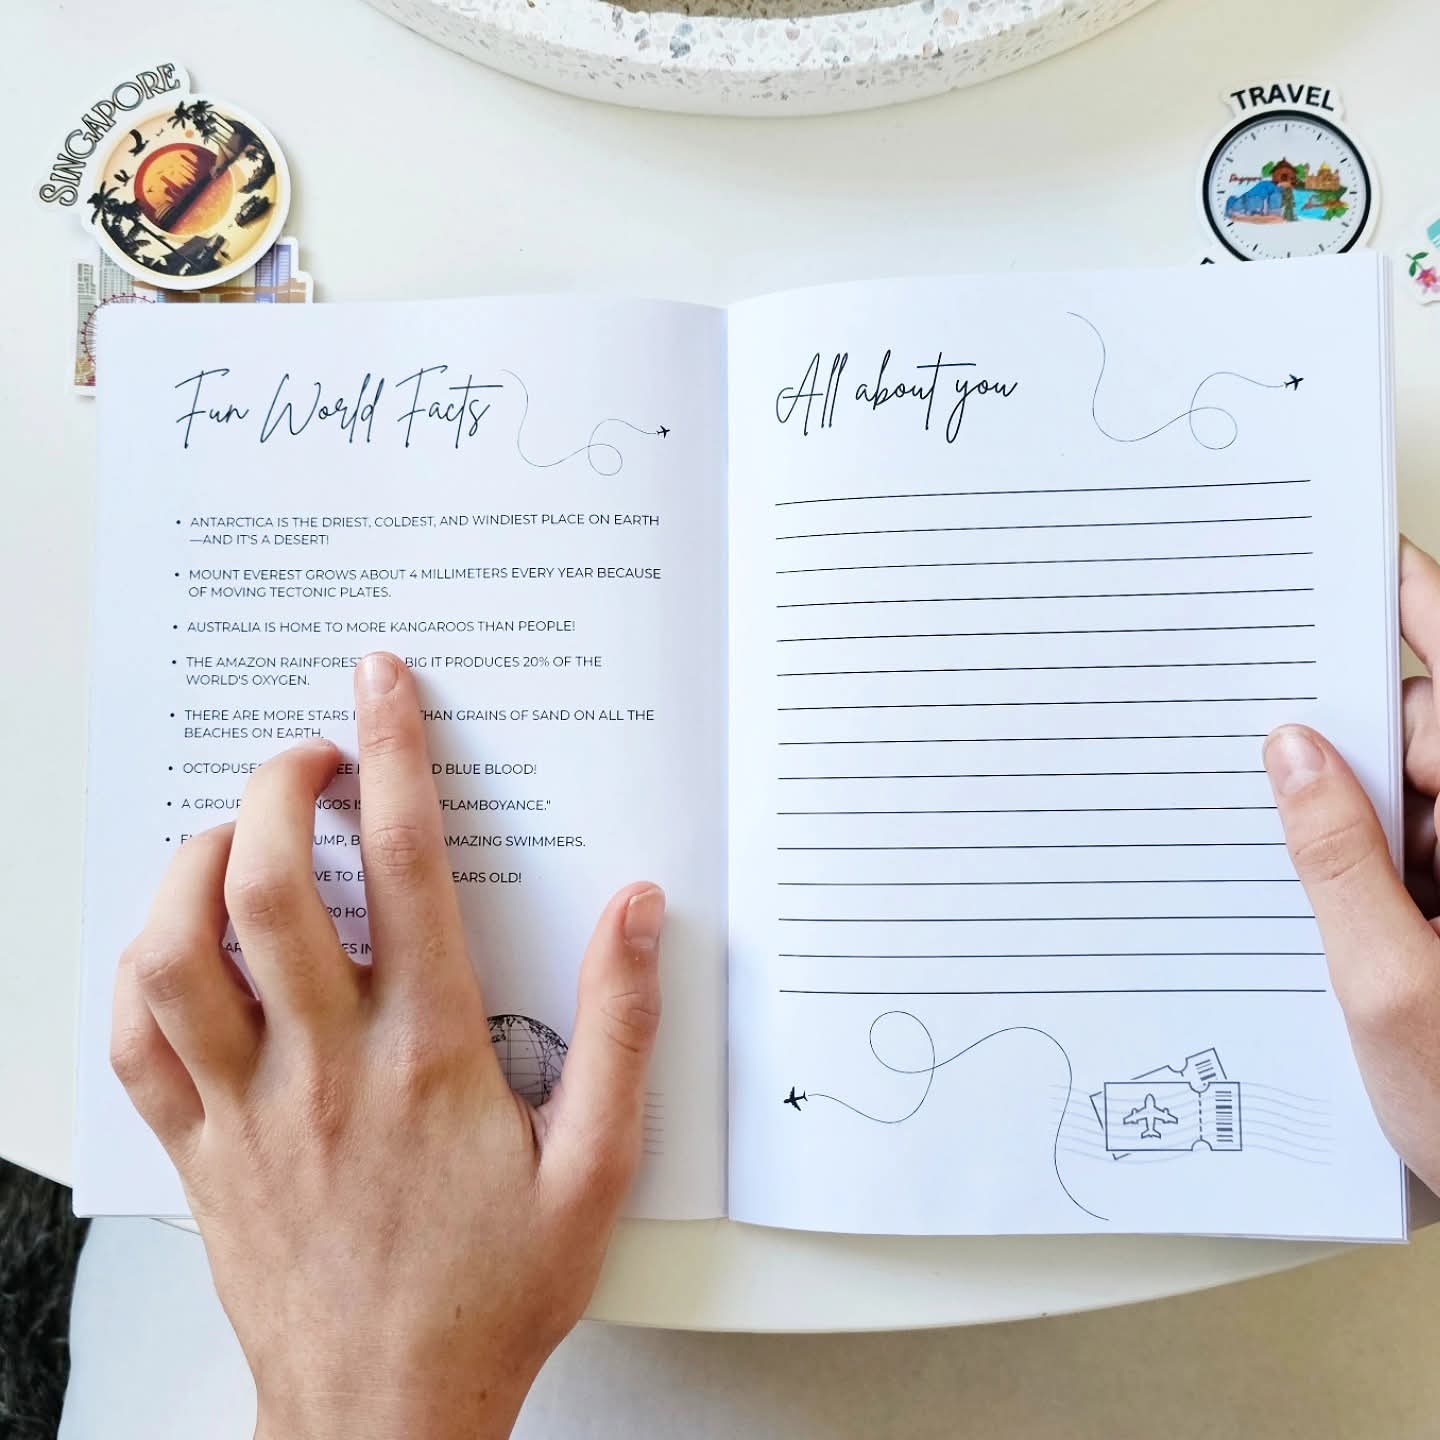 SINGAPORE
TRAVEL
Singapore
Fun World Facts
• ANTARCTICA IS THE DRIEST, COLDEST, AND WINDIEST PLACE ON EARTH
—AND IT'S A DESERT!
• MOUNT EVEREST GROWS ABOUT 4 MILLIMETERS EVERY YEAR BECAUSE
OF MOVING TECTONIC PLATES.
• AUSTRALIA IS HOME TO MORE KANGAROOS THAN PEOPLE!
• THE AMAZON RAINFOREST BIG IT PRODUCES 20% OF THE
WORLD'S OXYGEN.
• THERE ARE MORE STARS THAN GRAINS OF SAND ON ALL THE
BEACHES ON EARTH.
• BLUE BLOOD!
• A GROUP "FLAMBOYANCE."
• AMAZING SWIMMERS.
TO OLD!
20
All about you